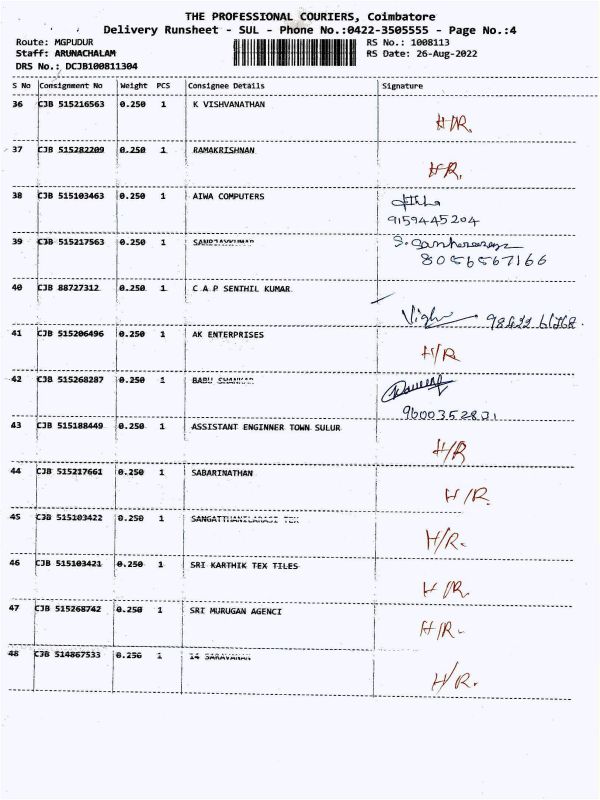 THE PROFESSIONAL COURIERS, Coimbatore
Delivery Runsheet - SUL - Phone No.:0422-3505555 - Page No.:4
Route: MGPUDUR RS No.: 1008113
Staff: ARUNACHALAM RS Date: 26-Aug-2022
DRS No.: DCJB100811304
S No Consignment No Weight PCS Consignee Details Signature
36 CJB 515216563 0.250 1 K VISHVANATHAN
H/R.
37 CJB 515282209 0.250 1 RAMAKRISHNAN
H/R.
38 CJB 515103463 0.250 1 AIWA COMPUTERS
9159445204
39 CJB 515217563 0.250 1 SANRJAYKUMAR
8056567166
40 CJB 88727312 0.250 1 C A P SENTHIL KUMAR
41 CJB 515206496 0.250 1 AK ENTERPRISES
H/R
42 CJB 515268287 0.250 1 BABU SHANKAR
9600352801
43 CJB 515188449 0.250 1 ASSISTANT ENGINNER TOWN SULUR
H/R
44 CJB 515217661 0.250 1 SABARINATHAN
H/R.
45 CJB 515103422 0.250 1 SANGATTHANILARASI TEX
H/R.
46 CJB 515103421 0.250 1 SRI KARTHIK TEX TILES
H/R.
47 CJB 515268742 0.250 1 SRI MURUGAN AGENCI
H/R.
48 CJB 514867533 0.250 1 14 SARAVANAN
H/R.